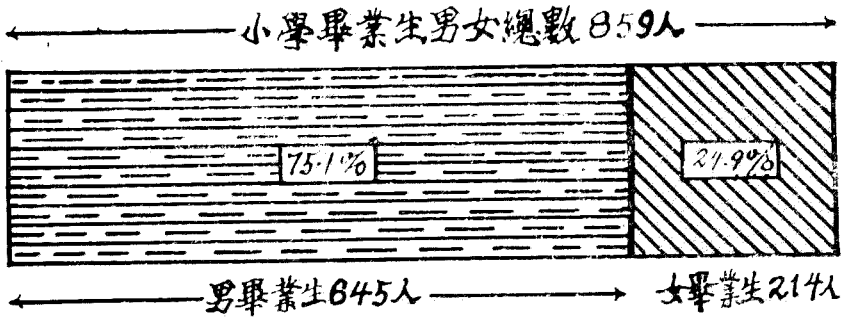 小學畢業生男女總數859人
75.1%
24.9%
男畢業生645人
女畢業生214人